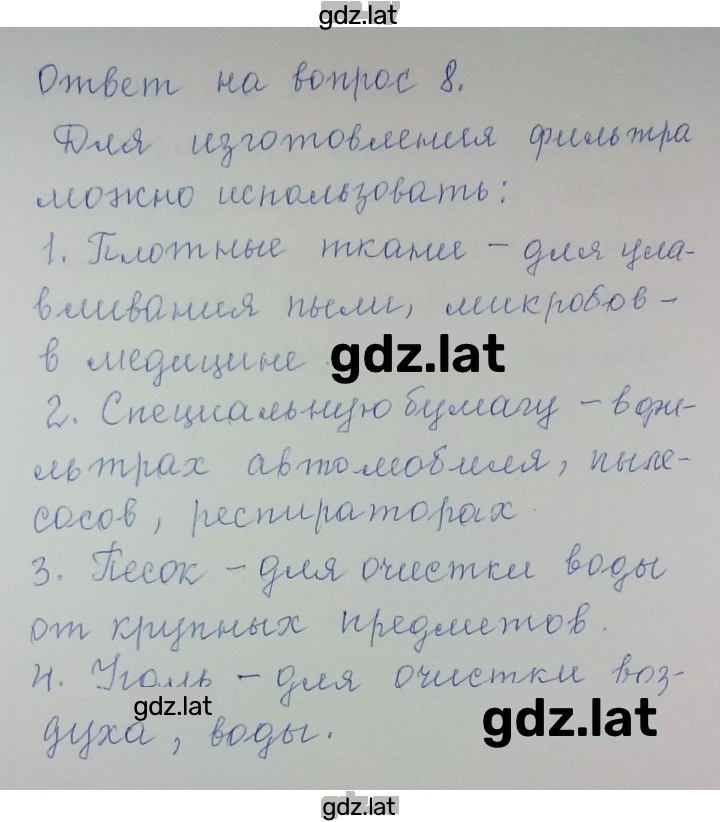 gdz.lat
Ответ на вопрос 8.
Для изготовления фильтра
можно использовать:
1. Плотные ткани - для ула-
вливания пыли, микробов -
в медицине
gdz.lat
2. Специальную бумагу - в фи-
льтрах автомобиля, пыле-
сосов, респираторах.
3. Песок - для очистки воды
от крупных предметов.
4. Уголь - для очистки воз-
gdz.lat
духа, воды.
gdz.lat
gdz.lat